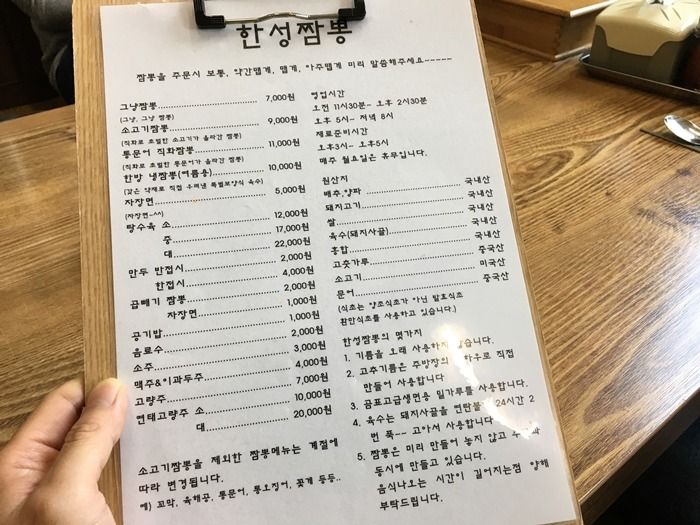 한성짬뽕
짬뽕을 주문시 보통, 약간맵게, 맵게, 아주맵게 미리 말씀해주세요~~~~~
그냥짬뽕 7,000원
(그냥, 그냥 짬뽕)
소고기짬뽕 9,000원
(직화로 초벌한 소고기가 올라간 짬뽕)
통문어 직화짬뽕 11,000원
(직화로 초벌한 통문어가 올라간 짬뽕)
한방 냉짬뽕(여름용) 10,000원
(갖은 약재로 직접 우려낸 특별보양식 육수)
자장면 5,000원
(자장면~^^)
탕수육 소 12,000원
중 17,000원
대 22,000원
만두 반접시 2,000원
한접시 4,000원
곱빼기 짬뽕 2,000원
자장면 1,000원
공기밥 1,000원
음료수 2,000원
소주 3,000원
맥주&이과두주 4,000원
고량주 7,000원
연태고량주 소 10,000원
대 20,000원
소고기짬뽕을 제외한 짬뽕메뉴는 계절에
따라 변경됩니다.
예) 꼬막, 육해공, 통문어, 통오징어, 꽃게 등등..
영업시간
오전 11시30분~ 오후 2시30분
오후 5시~ 저녁 8시
재료준비시간
오후3시~ 오후5시
매주 월요일은 휴무입니다.
원산지
배추,양파 국내산
돼지고기 국내산
쌀 국내산
육수(돼지사골) 국내산
홍합 국내산
고춧가루 중국산
소고기 미국산
문어 중국산
(식초는 양조식초가 아닌 발효식초
환만식초를 사용하고 있습니다.)
한성짬뽕의 몇가지
1. 기름을 오래 사용하지 않습니다.
2. 고추기름은 주방장의 하우로 직접
만들어 사용합니다
3. 곰표고급생면용 밀가루를 사용합니다.
4. 육수는 돼지사골을 연탄불 24시간 2
번 푹~~ 고아서 사용합니다.
5. 짬뽕은 미리 만들어 놓지 않고
동시에 만들고 있습니다.
음식나오는 시간이 길어지는점 양해
부탁드립니다.